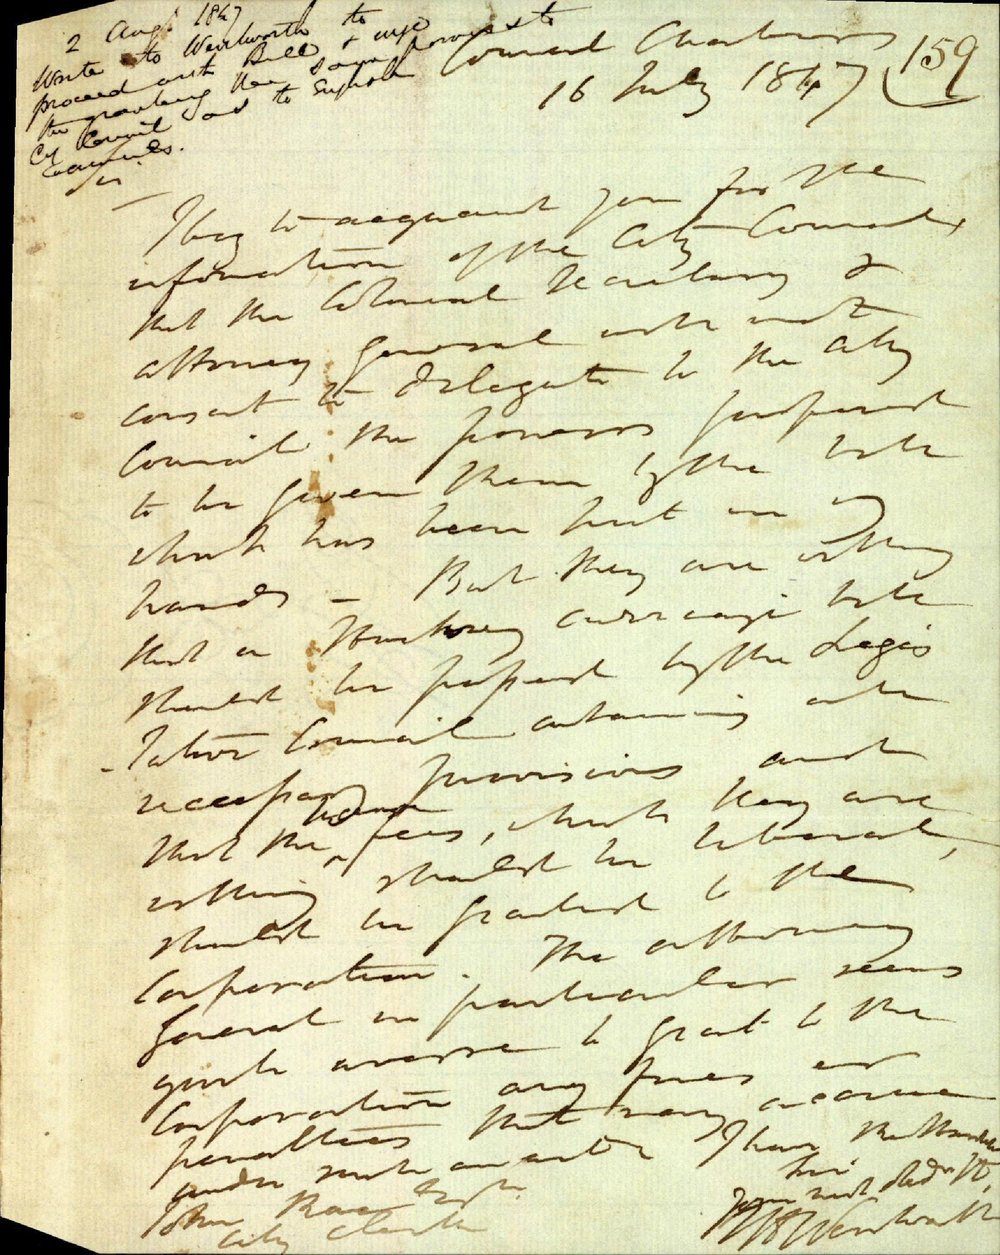 2 Augt 1847
Write to Wentworth to
proceed with Bill & urge
the granting the same powers to
Cy Council as to Sydney

Council Chambers
16 July 1847
159
I beg to acquaint you for the
information of the City Council,
that the Colonial Secretary &
Attorney General will not
consent to delegate to the City
Council the powers proposed
to be given them by the bill
which has been put in my
hands – But they are willing
that a Hackney carriage bill
should be passed by the Legis
lative Council containing all
necessary provisions and
that the license fees, which they are
willing should be liberal,
should be granted to the
Corporation. The Attorney
General in particular seems
quite averse to grant to the
Corporation any fines or
penalties that may accrue
under such an act
I have the honor
Sir
Your most obdt St,
W C Wentworth
John Rae Esqr.
City Clerk